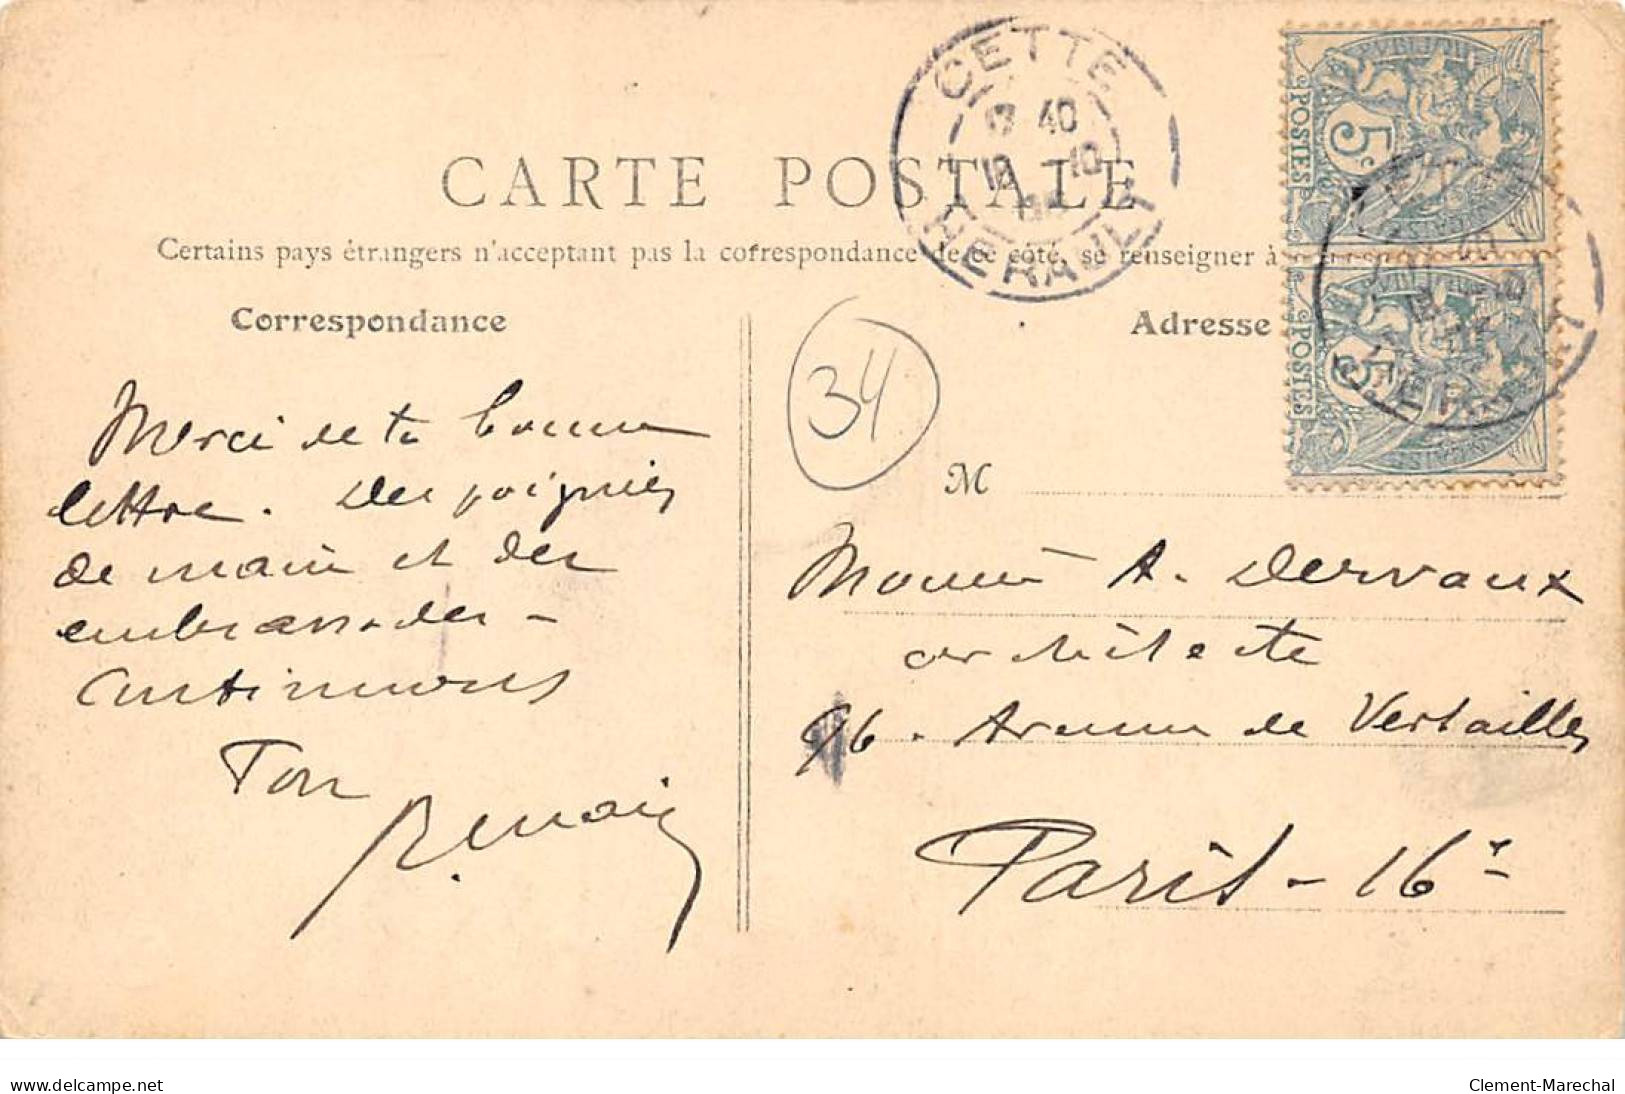 CARTE POSTALE
Certains pays étrangers n'acceptant pas la correspondance de ce côté, se renseigner à
Correspondance
Adresse
CETTE
40
10
HERAULT
POSTES
5c
POSTES
5c
34
Merci de ta bonne
lettre. Des poignées
de main et des
embrassades -
continuons
Ton
M
Monsieur A. Dervaux
architecte
96. Avenue de Versailles
Paris - 16e
delcampe.net
Clement-Marechal